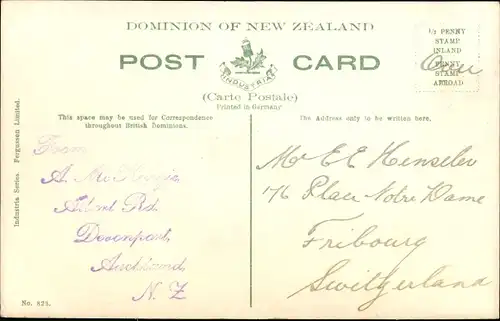 DOMINION OF NEW ZEALAND
POST CARD
INDUSTRIA
(Carte Postale)
Printed in Germany
½ PENNY
STAMP
INLAND
PENNY
STAMP
ABROAD
This space may be used for Correspondence
throughout British Dominions.
The Address only to be written here.
Industria Series. Fergusson Limited.
From
A.
Rd.
Devonport,
Auckland,
N. Z
Mr E E Henseler
176 Place Notre Dame
Fribourg
Switzerland
No. 825.